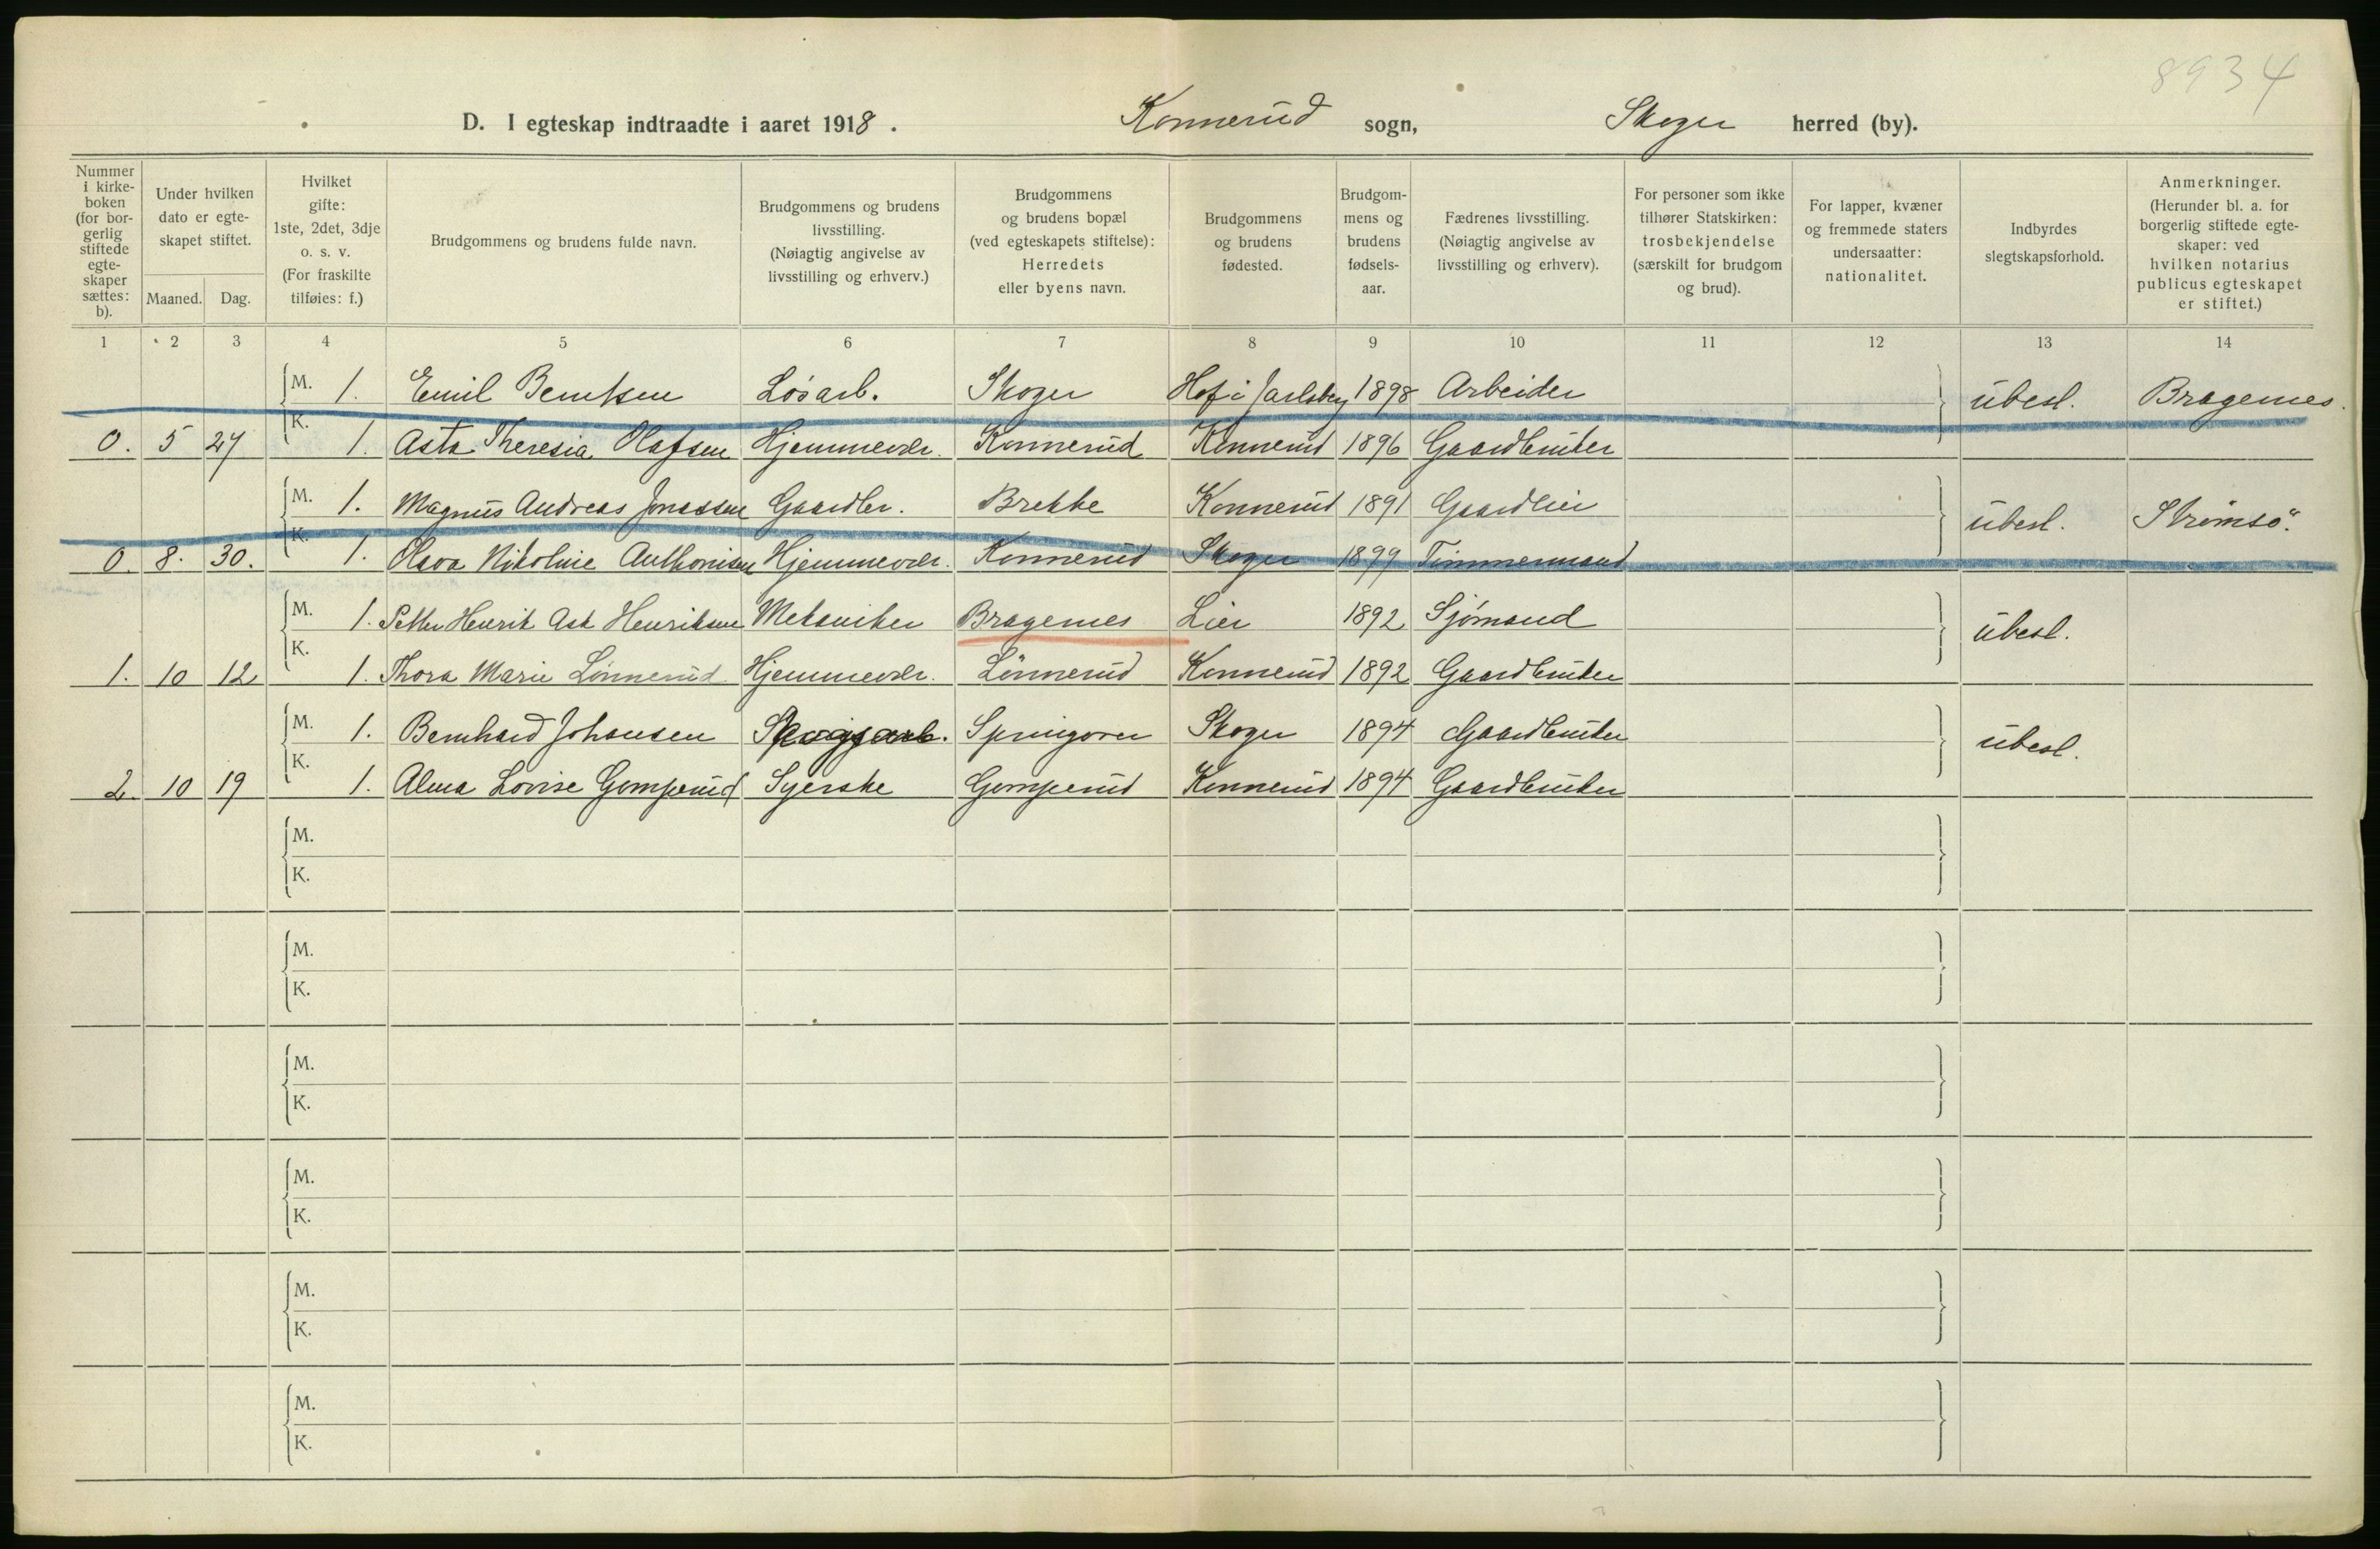 8934
D. I egteskap indtraadte i aaret 1918. Konnerud sogn, Skoger herred (by).
Nummer i kirke-boken (for bor-gerlig stiftede egte-skaper sættes: b).
Under hvilken dato er egte-skapet stiftet.
Maaned. Dag.
Hvilket gifte: 1ste, 2det, 3dje o. s. v. (For fraskilte tilføies: f.)
Brudgommens og brudens fulde navn.
Brudgommens og brudens livsstilling. (Nøiagtig angivelse av livsstilling og erhverv.)
Brudgommens og brudens bopæl (ved egteskapets stiftelse): Herredets eller byens navn.
Brudgommens og brudens fødested.
Brudgom-mens og brudens fødsels-aar.
Fædrenes livsstilling. (Nøiagtig angivelse av livsstilling og erhverv).
For personer som ikke tilhører Statskirken: trosbekjendelse (særskilt for brudgom og brud).
For lapper, kvæner og fremmede staters undersaatter: nationalitet.
Indbyrdes slegtskapsforhold.
Anmerkninger. (Herunder bl. a. for borgerlig stiftede egte-skaper: ved hvilken notarius publicus egteskapet er stiftet.)
1 2 3 4 5 6 7 8 9 10 11 12 13 14
M. 1. Emil Berntsen Løsarb. Skoger Hof i Jarlsberg 1898 Arbeider ubesl. Bragernes.
0. 5 27 K. 1. Asta Theresia Olafsen Hjemmevær. Konnerud Konnerud 1896 Gaardbruker
M. 1. Magnus Andreas Jonassen Gaardbr. Brekke Konnerud 1891 Gaardeier ubesl. Strømsø.
0. 8. 30. K. 1. Olava Nikoline Anthonisen Hjemmevær. Konnerud Skoger 1899 Tømmermand
M. 1. Petter Henrik Ask Henriksen Mekaniker Bragernes Lier 1892 Sjømand ubesl.
1. 10 12 K. 1. Thora Marie Lønnerud Hjemmevær. Lønnerud Konnerud 1892 Gaardbruker
M. 1. Bernhard Johansen Skogsarb. Springoren Skoger 1894 Gaardbruker ubesl.
2. 10 19 K. 1. Alma Lovise Gomperud Syerske Gomperud Konnerud 1894 Gaardbruker
M.
K.
M.
K.
M.
K.
M.
K.
M.
K.
M.
K.